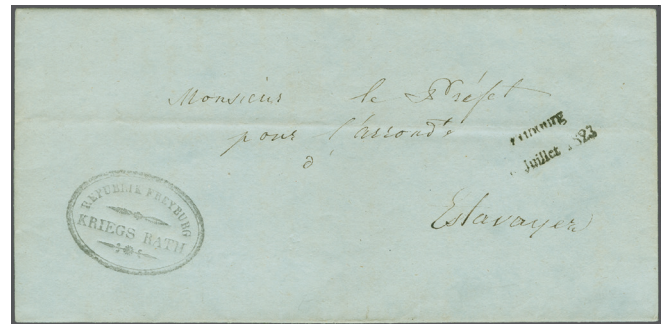 Monsieur le Préfet
pour l'arrond.t
à
Estavayer
Juillet 1823
REPUBLIK FREYBURG
KRIEGS RATH